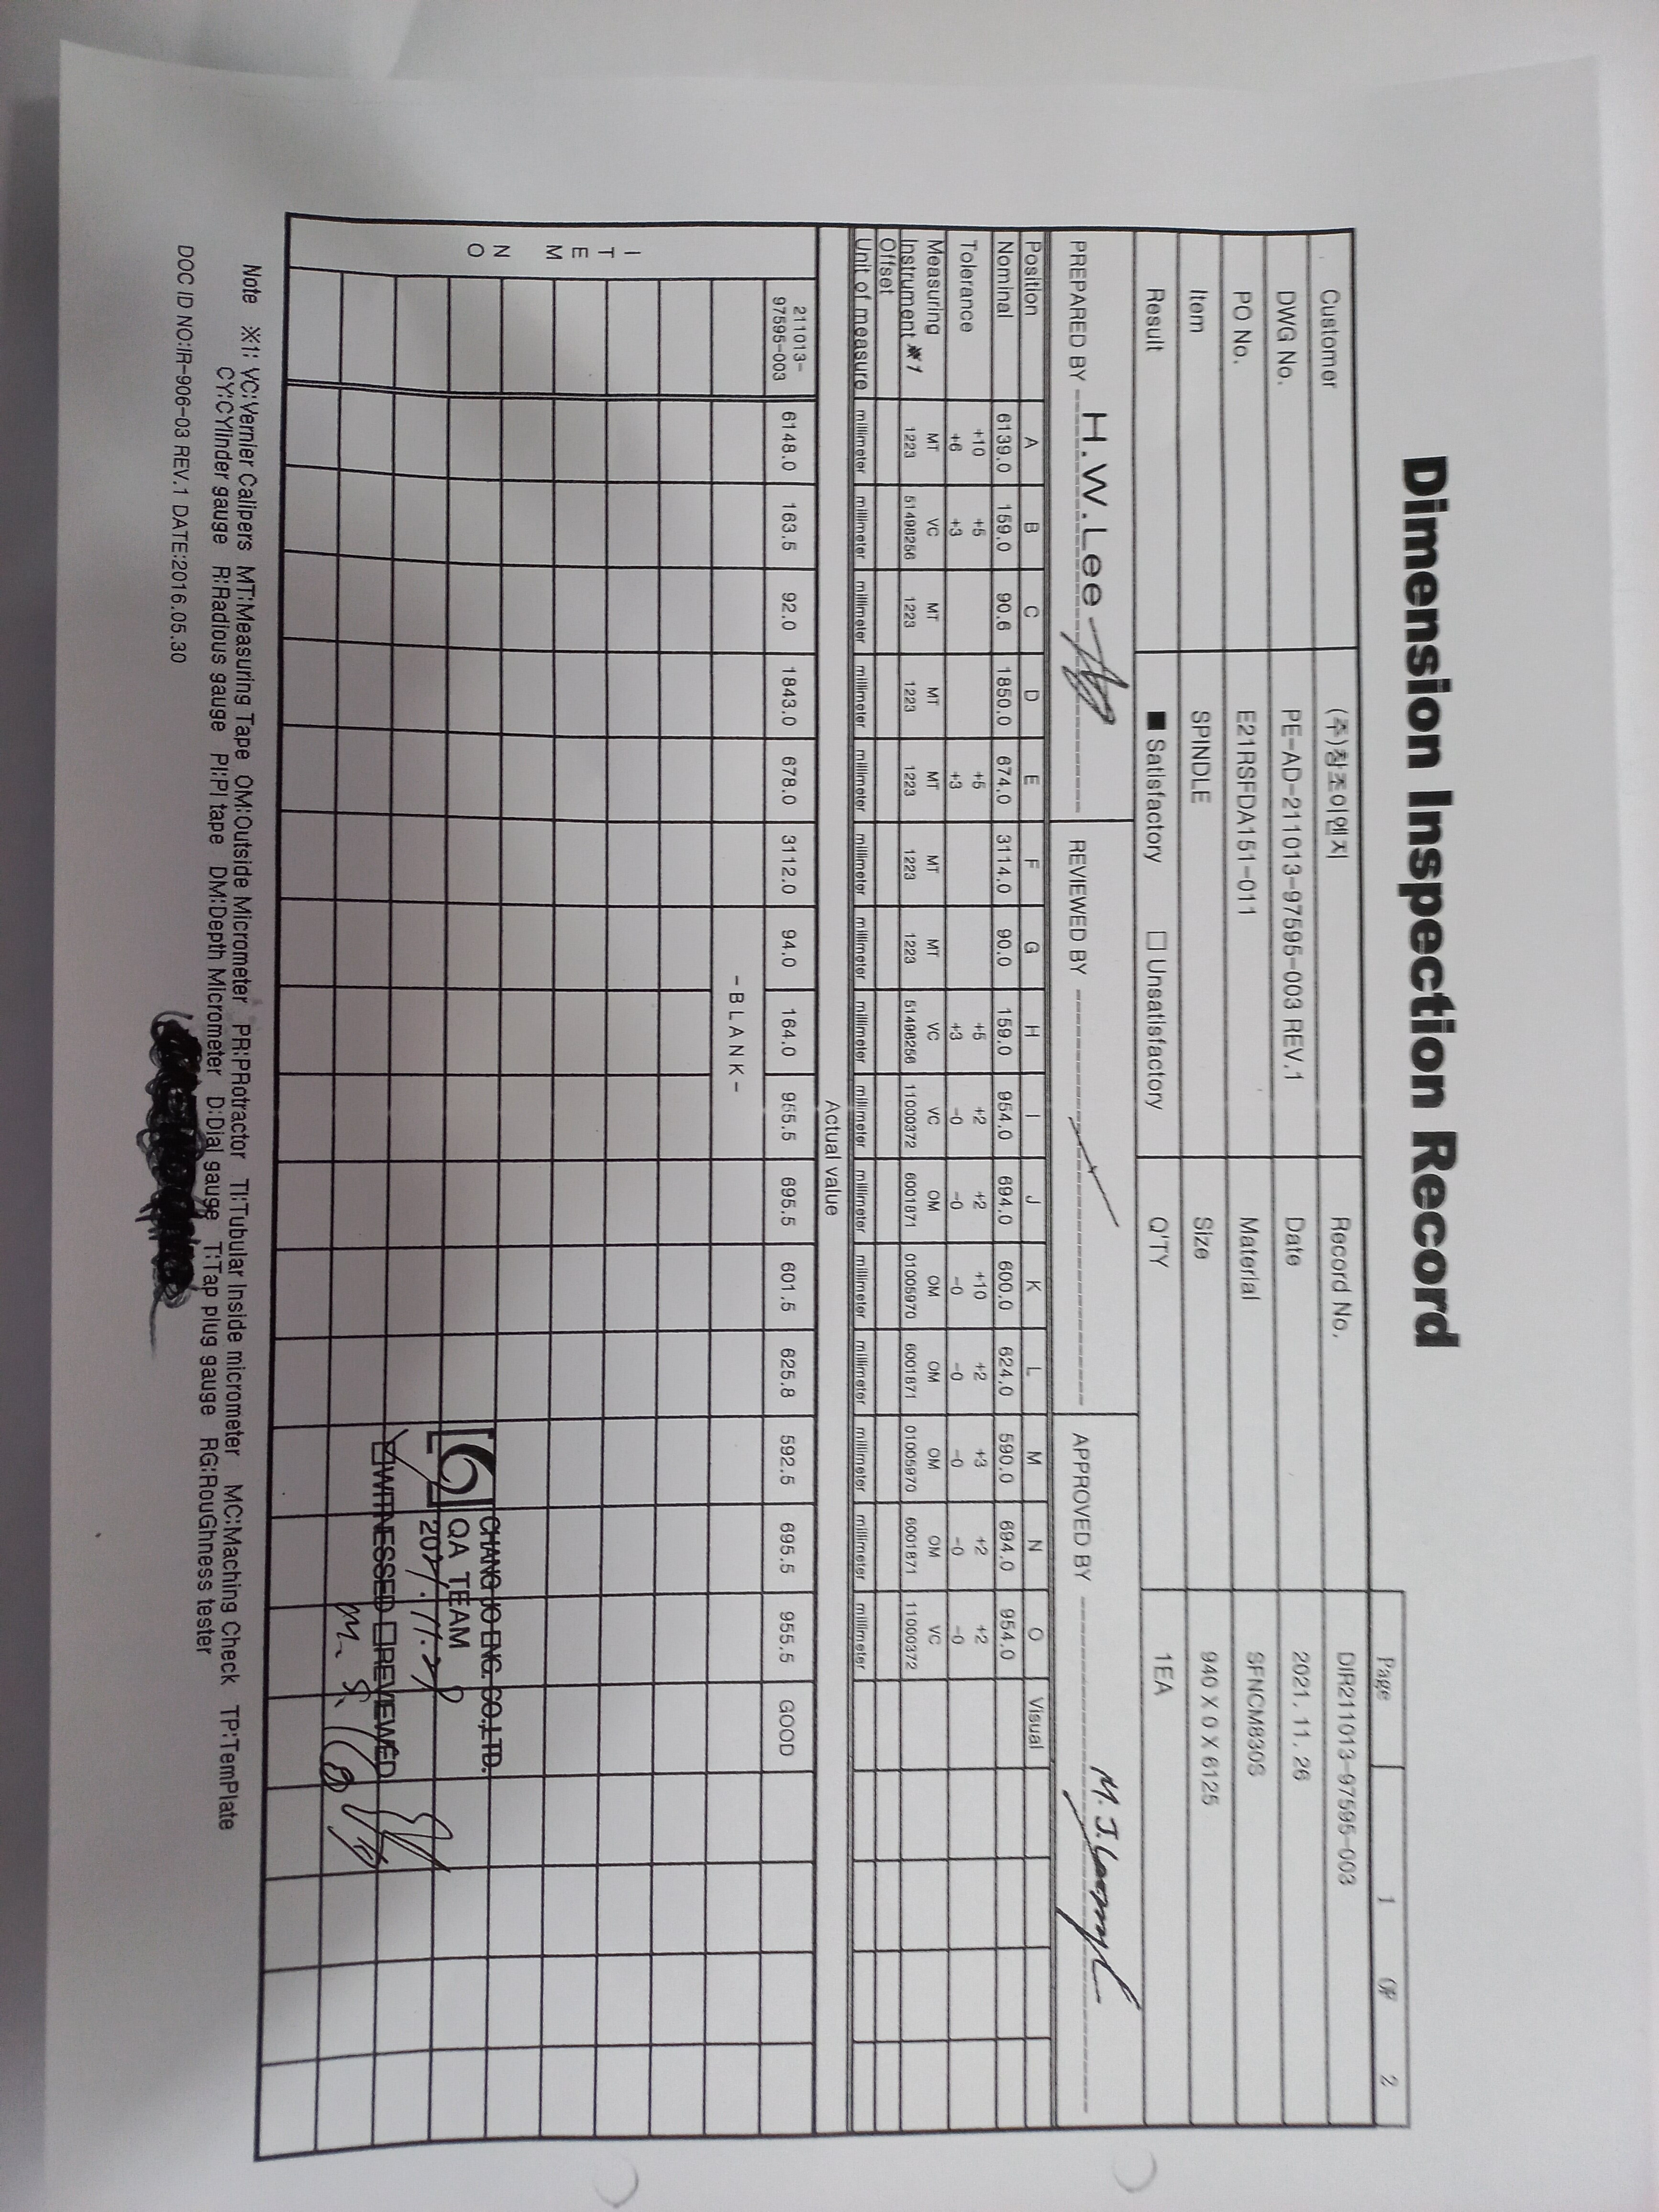 Dimension Inspection Record
Page 1 OF 2
Customer (주)창조이엔지 Record No. DIR211013-97595-003
DWG No. PE-AD-211013-97595-003 REV.1 Date 2021. 11. 26
PO No. E21RSFDA151-011 Material SFNCM830S
Item SPINDLE Size 940 X 0 X 6125
Result ■ Satisfactory □ Unsatisfactory Q'TY 1EA
PREPARED BY H.W.Lee REVIEWED BY APPROVED BY
Position A B C D E F G H I J K L M N O Visual
Nominal 6139.0 159.0 90.6 1850.0 674.0 3114.0 90.0 159.0 954.0 694.0 600.0 624.0 590.0 694.0 954.0
Tolerance +10 +5 +5 +5 +2 +2 +10 +2 +3 +2 +2
+6 +3 +3 +3 -0 -0 -0 -0 -0 -0 -0
Measuring MT VC MT MT MT MT MT VC VC OM OM OM OM OM VC
Instrument ※1 1223 51498256 1223 1223 1223 1223 1223 51498256 11000372 6001871 01005970 6001871 01005970 6001871 11000372
Offset
Unit of measure millimeter millimeter millimeter millimeter millimeter millimeter millimeter millimeter millimeter millimeter millimeter millimeter millimeter millimeter millimeter
Actual value
ITEM NO
211013-97595-003 6148.0 163.5 92.0 1843.0 678.0 3112.0 94.0 164.0 955.5 695.5 601.5 625.8 592.5 695.5 955.5 GOOD
-BLANK-
CHANG JO ENG. CO.,LTD.
QA TEAM
☑WITNESSED □REVIEWED
Note ※1: VC:Vernier Calipers MT:Measuring Tape OM:Outside Micrometer PR:PRotractor TI:Tubular Inside micrometer MC:Maching Check TP:TemPlate
CY:CYlinder gauge R:Radious gauge PI:PI tape DM:Depth Micrometer D:Dial gauge T:Tap plug gauge RG:RouGhness tester
DOC ID NO:IR-906-03 REV.1 DATE:2016.05.30